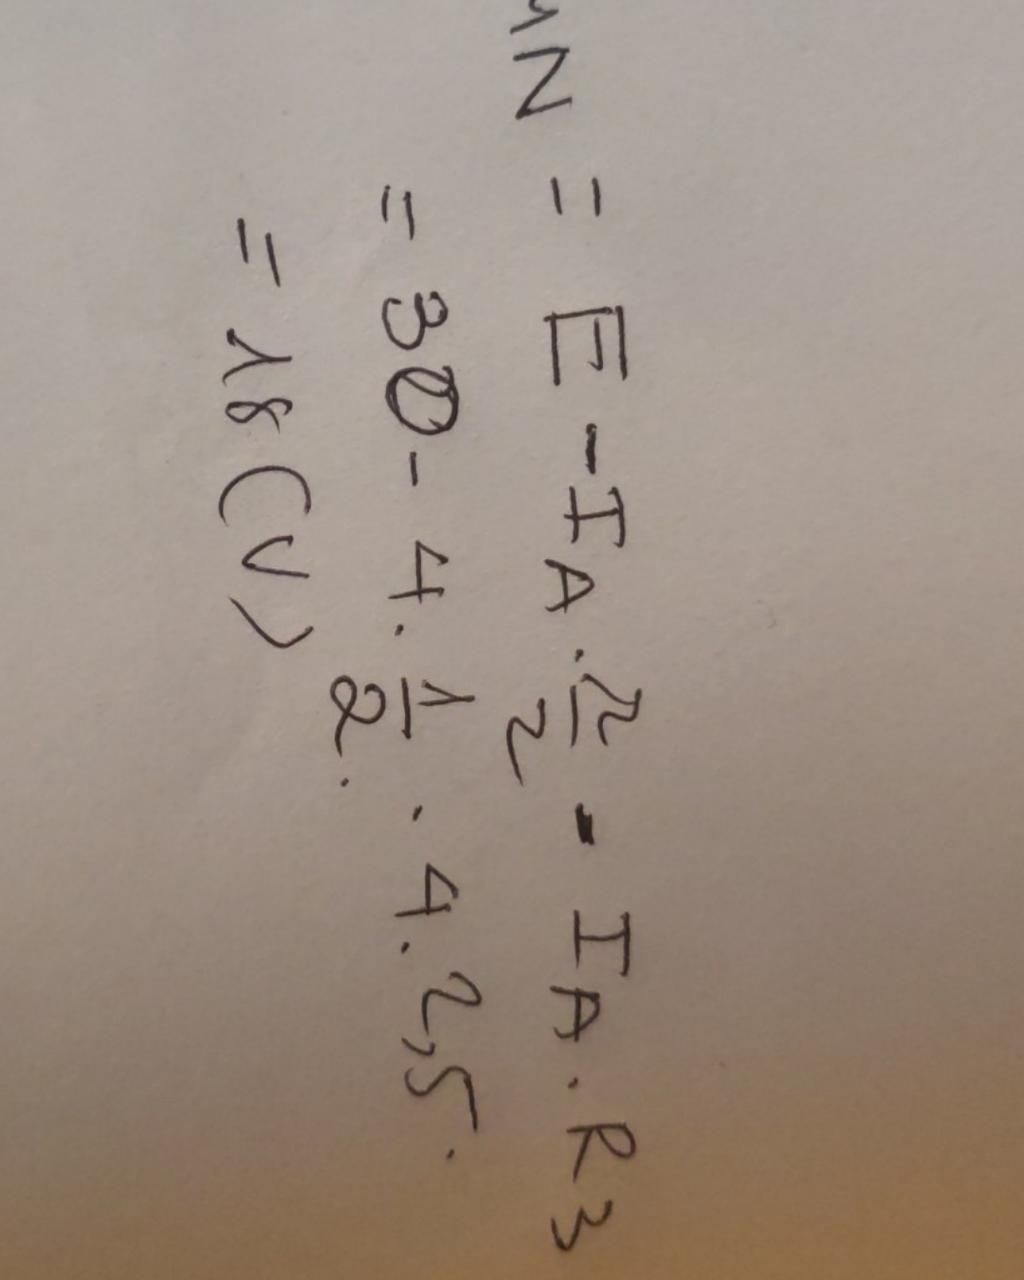 MN = E - I_A . r/2 - I_A . R3
= 30 - 4 . 1/2 . . 4 . 2,5 .
= 18 (V)